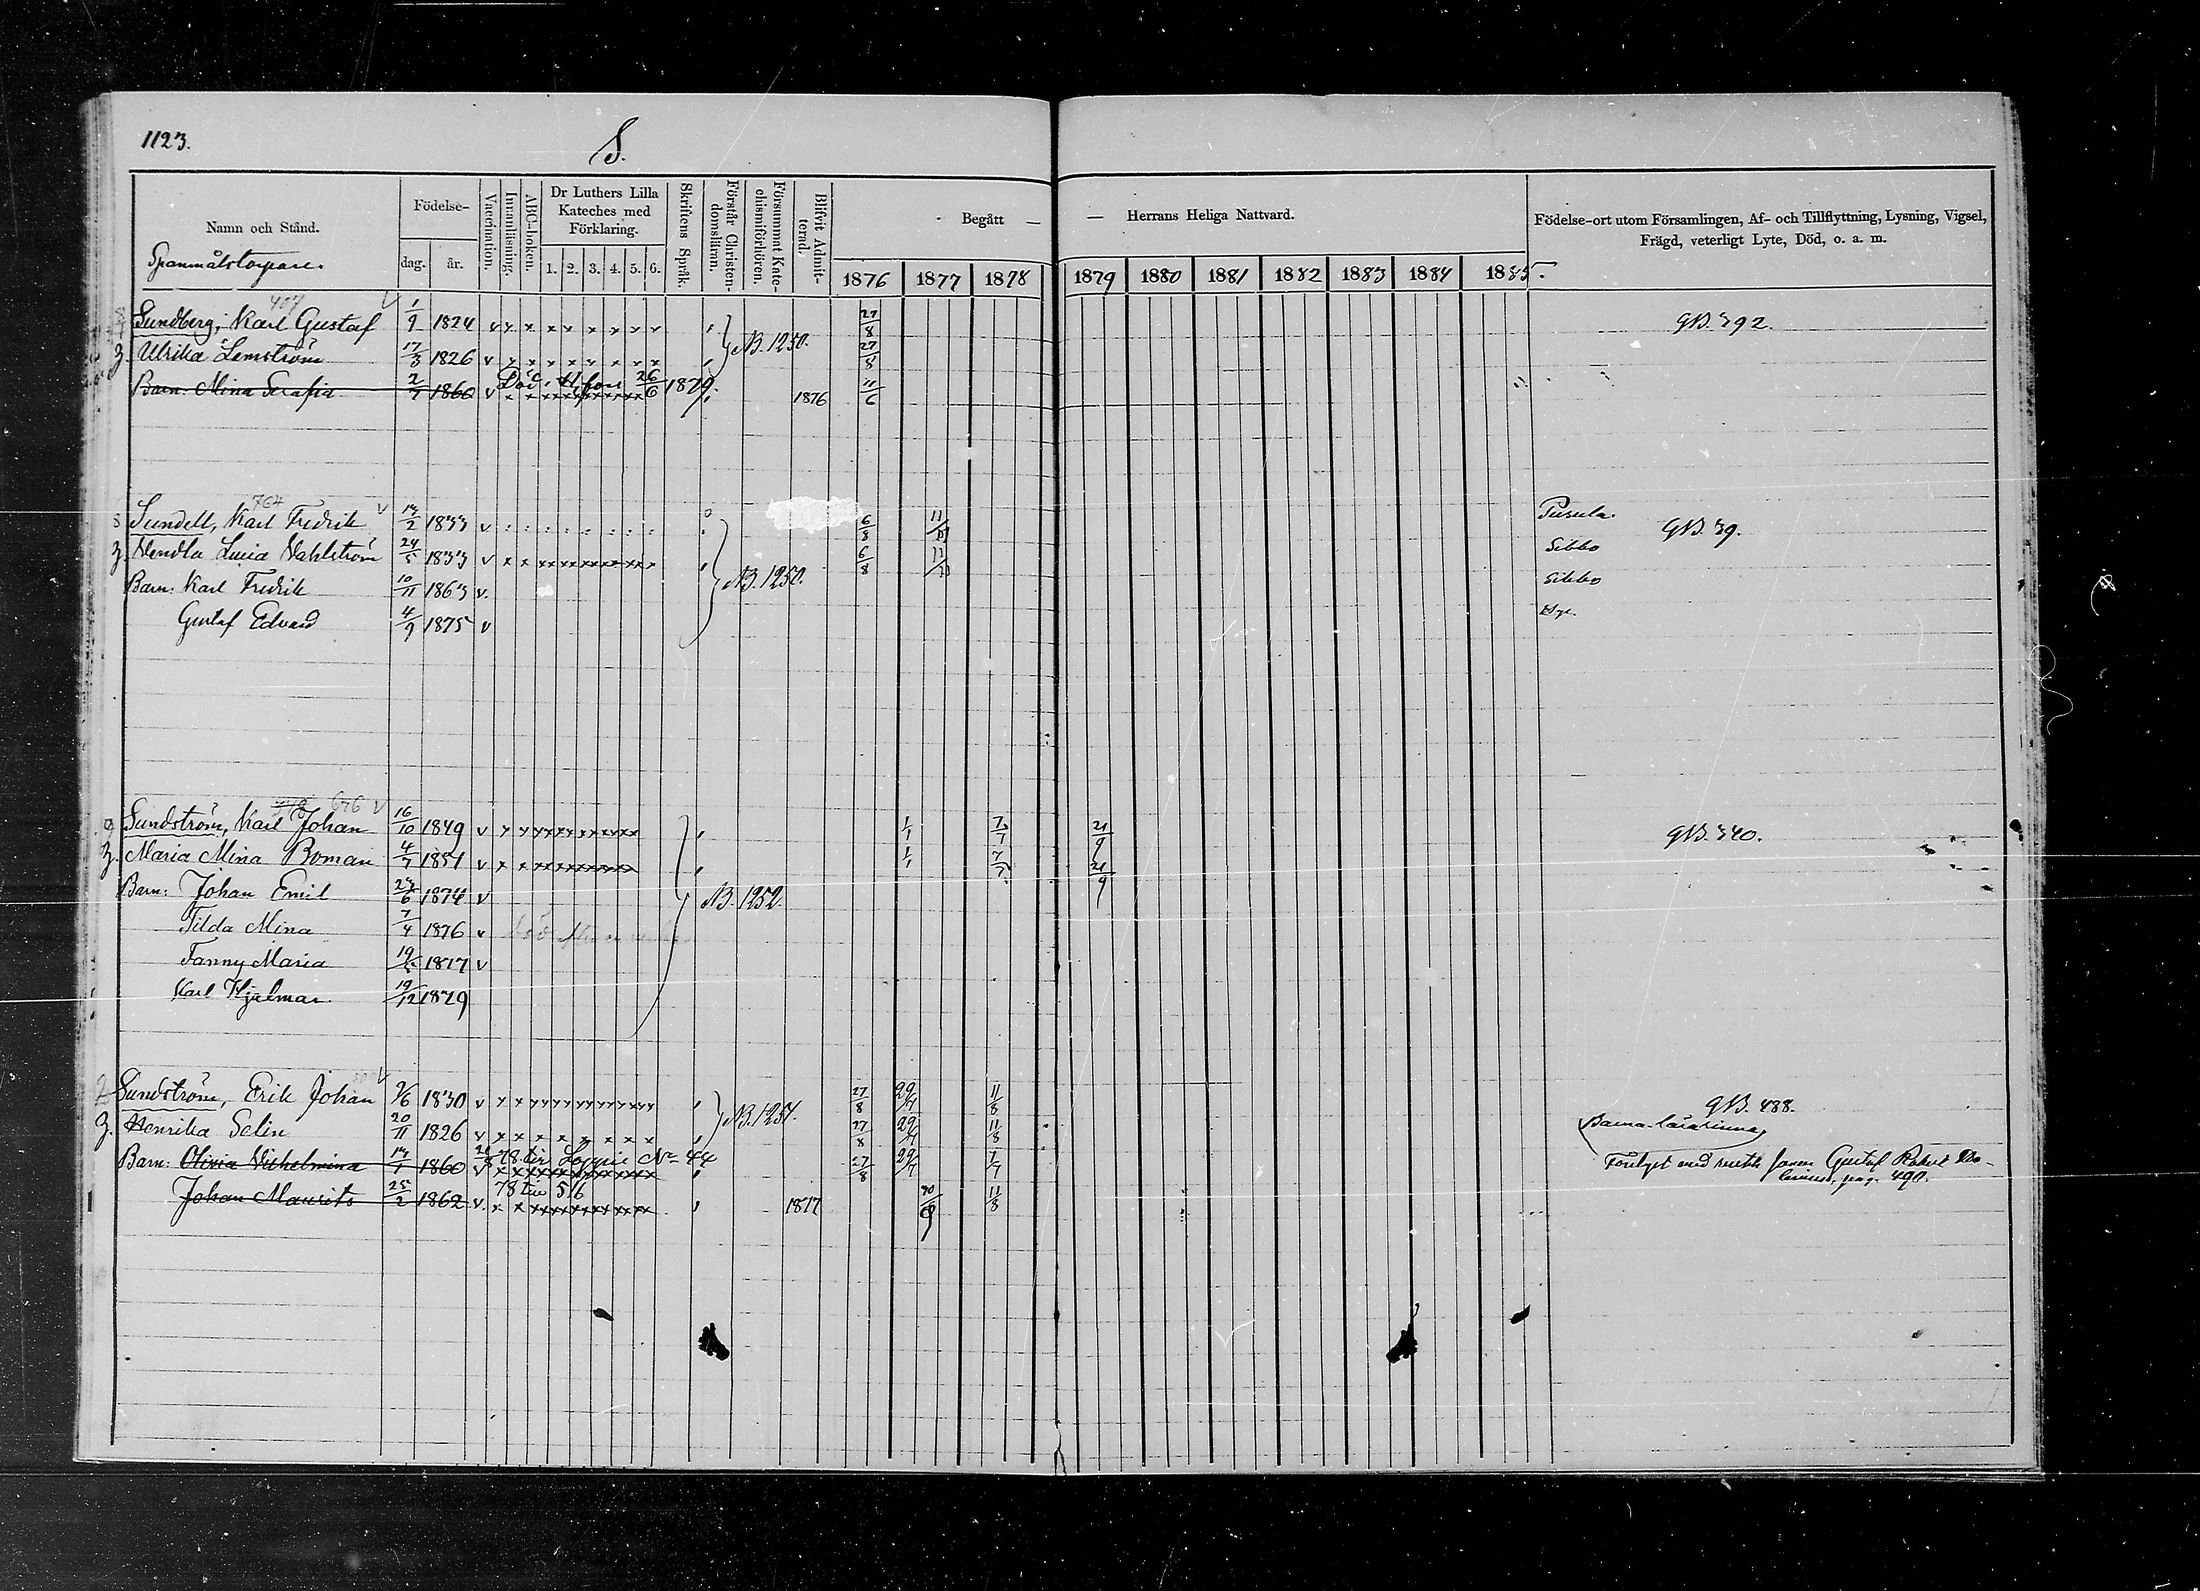 1123.
S.
Namn och Stånd.
Spanmålstorpare.
Födelse-
dag. år.
Vaccination.
Innanläsning.
ABC-boken.
Dr Luthers Lilla Kateches med Förklaring.
1. 2. 3. 4. 5. 6.
Skriftens Språk.
Förstår Christendomsläran.
Försummat Katechismiförhören.
Blifvit Admitterad.
Begått — — Herrans Heliga Nattvard.
1876 1877 1878 1879 1880 1881 1882 1883 1884 1885.
Födelse-ort utom Församlingen, Af- och Tillflyttning, Lysning, Vigsel,
Frägd, veterligt Lyte, Död, o. a. m.
Sundberg, Karl Gustaf 1/9 1824 v x x x x x x x x 27/8 GB. 392.
Ulrika Lemström 17/3 1826 v x x x x x x x x NB. 1250. 27/8
Död 26/6 1879.
Barn: Mina Serafia 1860 v 1876 11/6
764
Sundell, Karl Fredrik 1833 v 6/8 Pusula GB. 39.
Vendla Lucia Vahlström 24/5 1833 v x x x x x x x x 6/8 Sibbo
Barn: Karl Fredrik 10/11 1863 v. NB. 1250. Sibbo
Gustaf Edvard 4/9 1875 v
676
Sundström, Karl Johan 16/10 1849 v x x x x x x x x 1/1 7/7 21/9 GB. 340.
Maria Mina Boman 4/7 1851 v x x x x x x x x 1/1 7/7 21/9
Barn: Johan Emil 1874 v NB. 1252.
Tilda Mina 7/4 1876 v
Fanny Maria 1877 v
Karl Hjalmar 19/12 1879
Sundström, Erik Johan 9/6 1830 v x x x x x x x x 27/8 29/7 11/8 GB. 488.
Henrika Selin 20/11 1826 v x x x x x x x x NB. 1251. 27/8 29/7 11/8 Barna-lärarinna
Barn: Olivia Vilhelmina 1860 v 78 No 44 27/8 29/7 7/7 Gustaf Robert
pag. 490.
Johan Maurits 25/2 1862 v. 78 516 1877 11/8